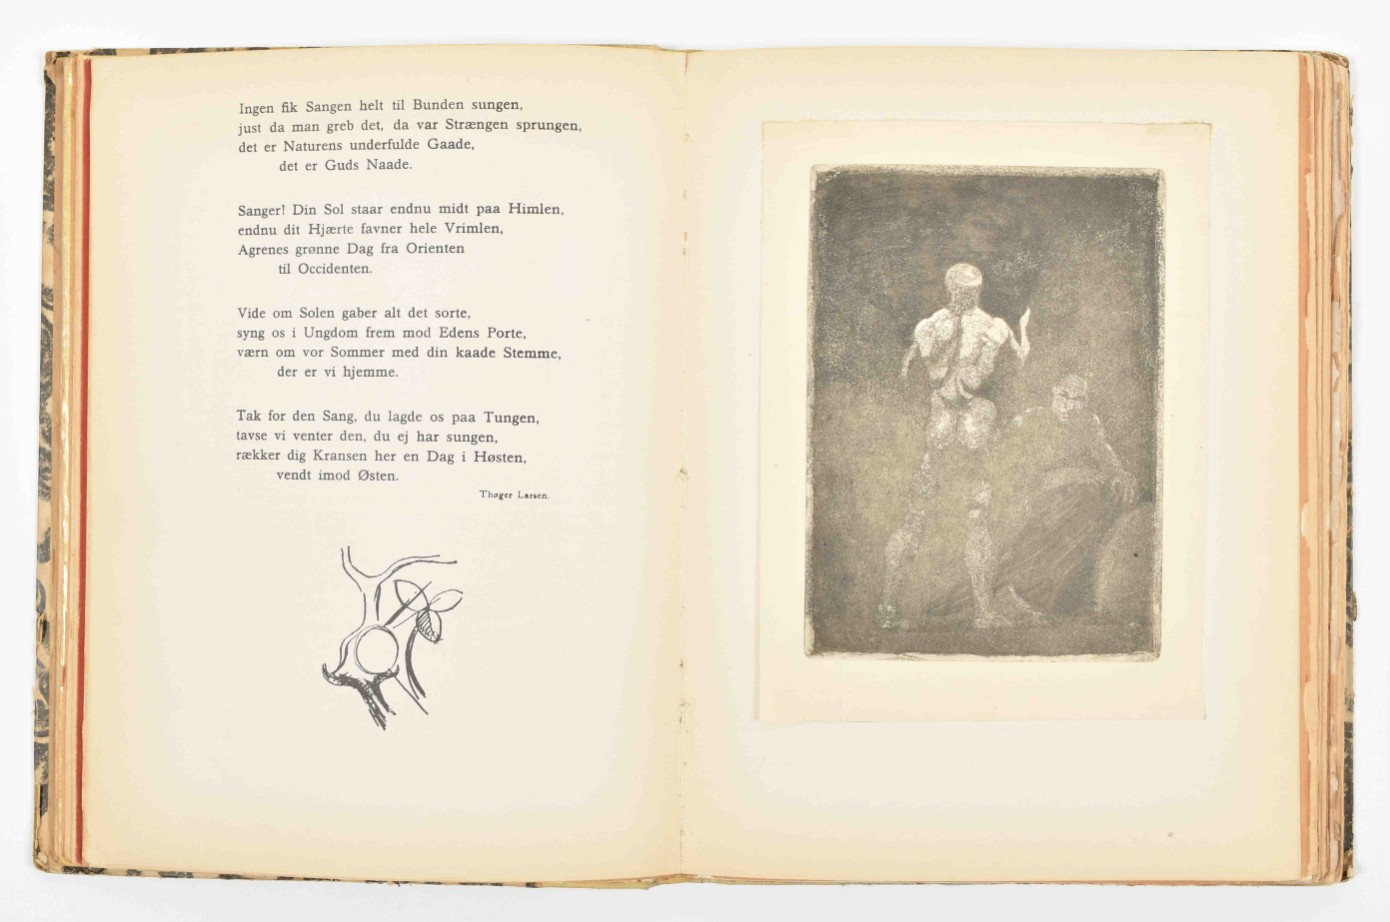 Ingen fik Sangen helt til Bunden sungen,
just da man greb det, da var Strængen sprungen,
det er Naturens underfulde Gaade,
det er Guds Naade.
Sanger! Din Sol staar endnu midt paa Himlen,
endnu dit Hjærte favner hele Vrimlen,
Agrenes grønne Dag fra Orienten
til Occidenten.
Vide om Solen gaber alt det sorte,
syng os i Ungdom frem mod Edens Porte,
værn om vor Sommer med din kaade Stemme,
der er vi hjemme.
Tak for den Sang, du lagde os paa Tungen,
tavse vi venter den, du ej har sungen,
rækker dig Kransen her en Dag i Høsten,
vendt imod Østen.
Thøger Larsen.